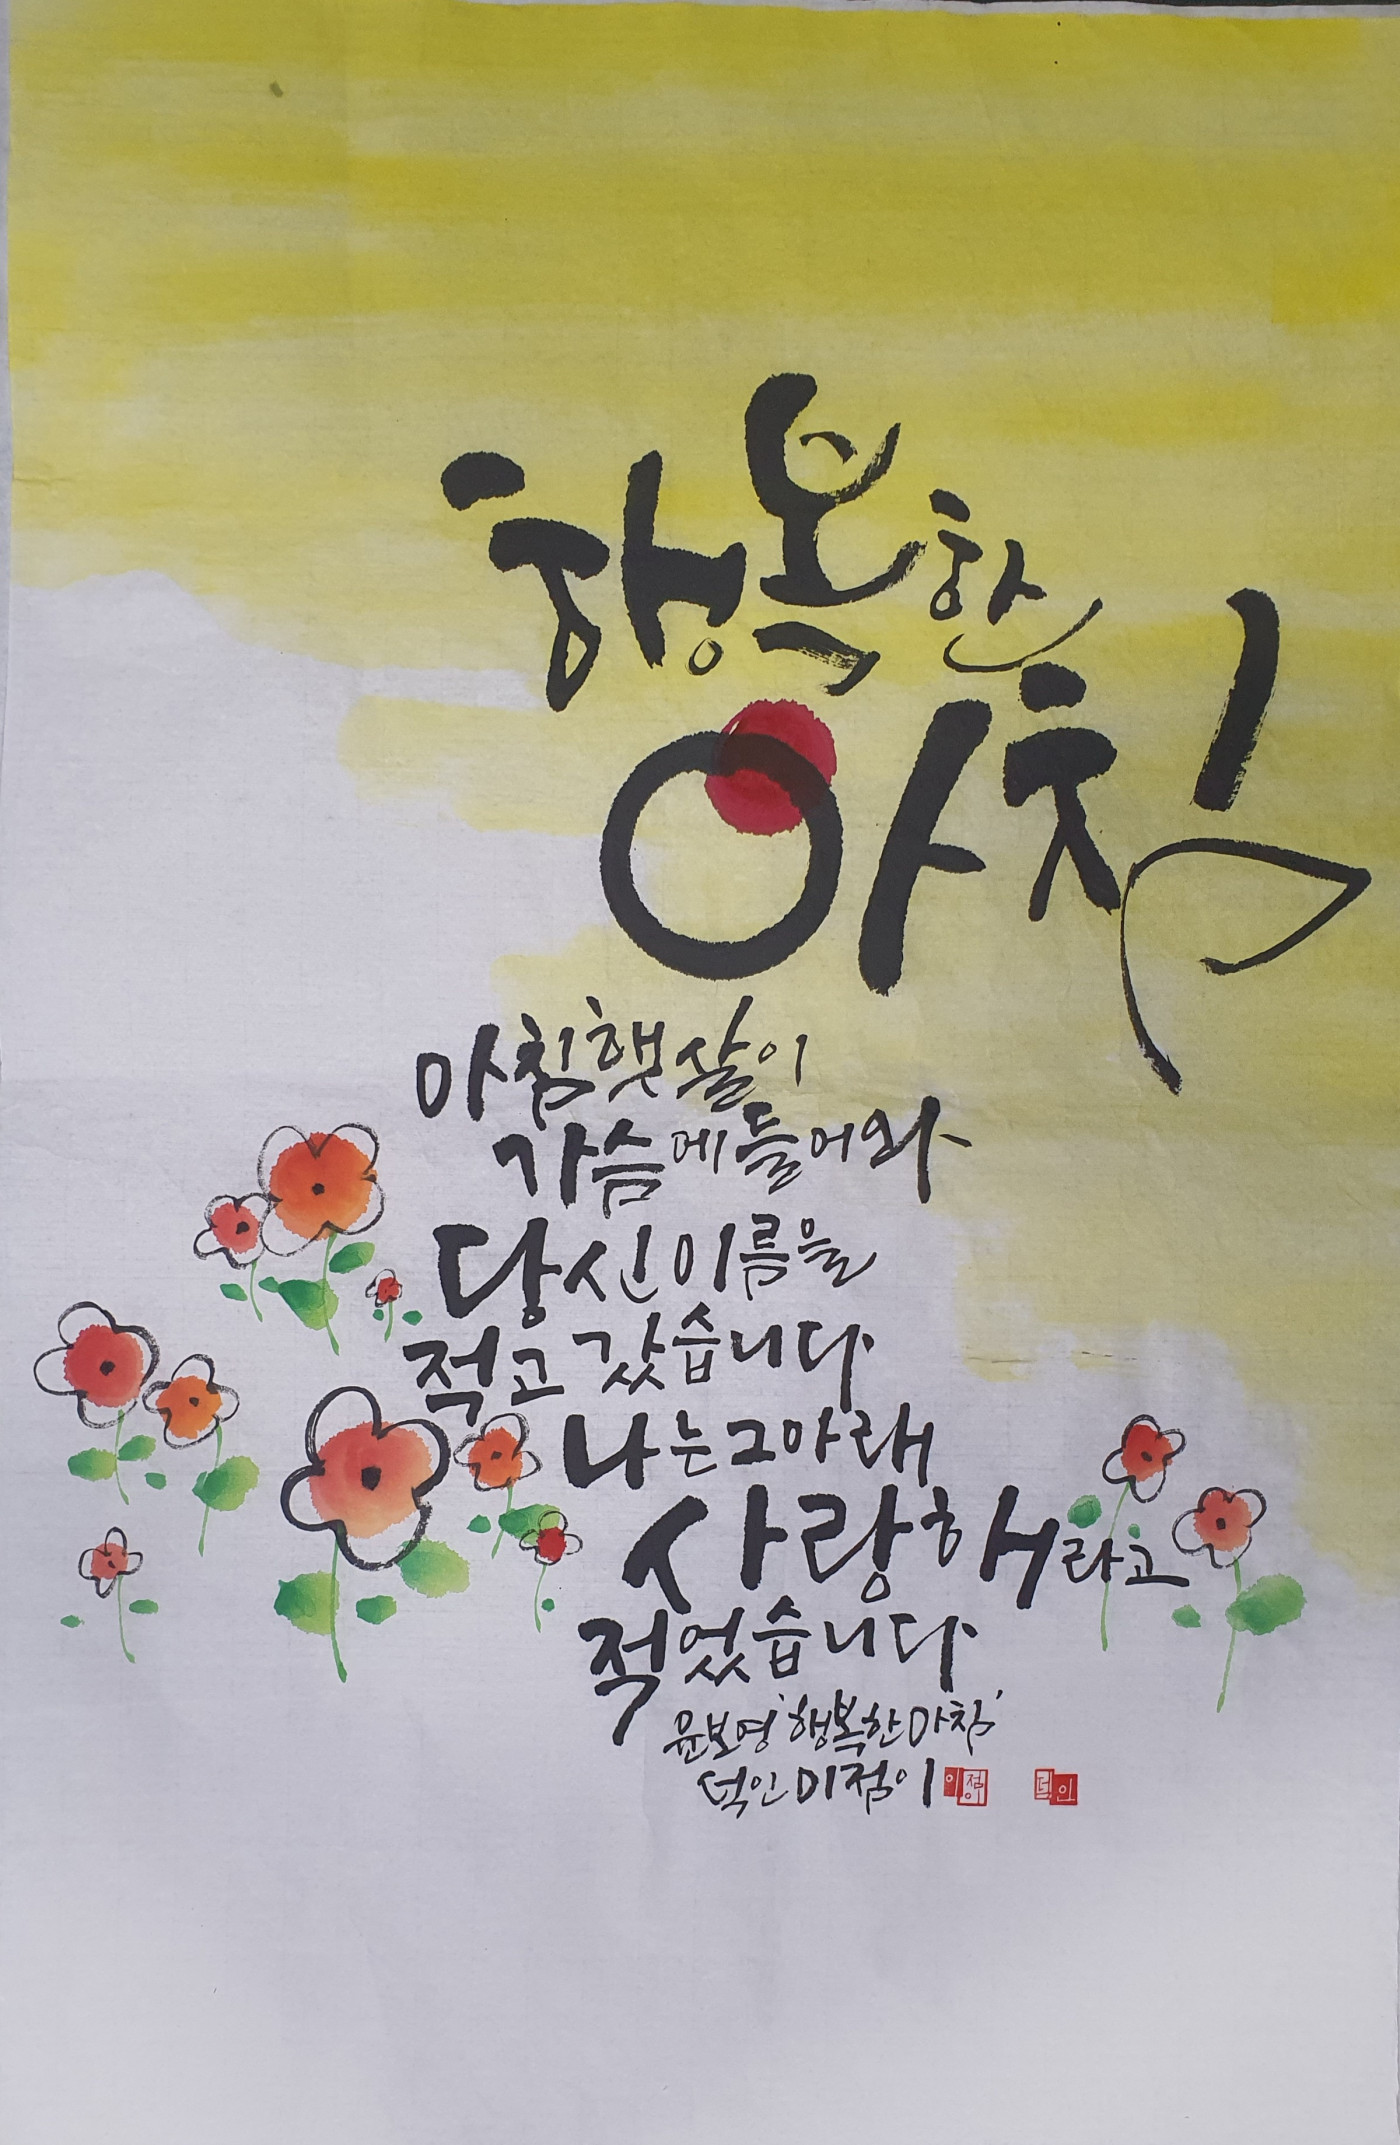 행복한
아침
아침 햇살이
가슴에 들어와
당신 이름을
적고 갔습니다
나는 그 아래
사랑해라고
적었습니다.
윤보영 '행복한 아침'
덕인 이점이
이점이
덕인